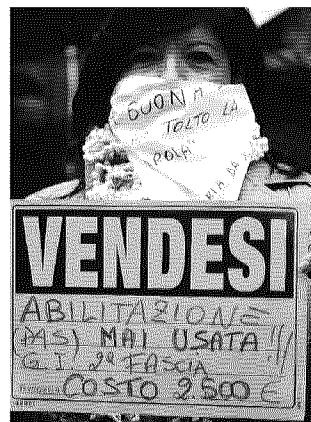 BUONA
TOLTO LA
VENDESI
ABILITAZIONE
(PAS) MAI USATA !!!
G.I. 2ª FASCIA
COSTO 2.500 €